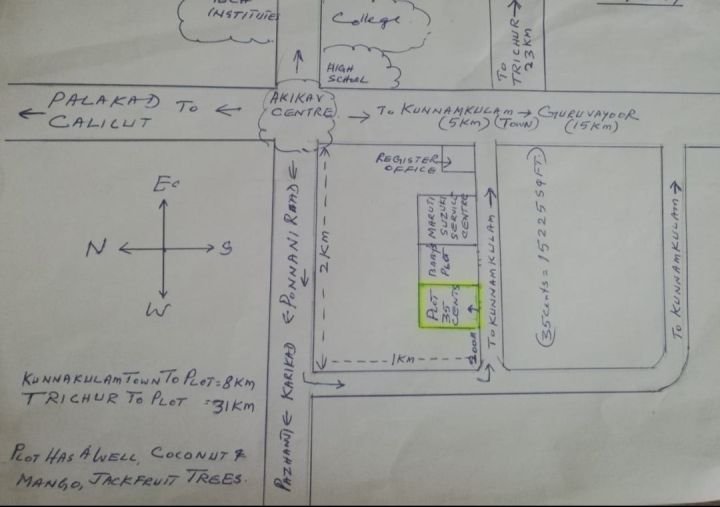 TECH
INSTITUTES
College
HIGH
SCHOOL
TO
TRICHUR →
23 KM
← PALAKAD TO ←
CALICUT
AKIKAV
CENTRE
→ TO KUNNAMKULAM → GURUVAYOOR
(5KM) (TOWN) (15KM)
REGISTER
OFFICE
MARUTI
SUZUKI
SERVICE
CENTRE
PLOT
PLOT
35
CENTS
200M
TO KUNNAMKULAM →
(35 Cents = 15225 SQ FT.)
TO KUNNAMKULAM →
2KM
1KM
PAZHANJI ← KARIKAD ← PONNANI ROAD ←
E
N
S
W
KUNNAKULAM TOWN TO PLOT = 8KM
TRICHUR TO PLOT = 31KM
PLOT HAS A WELL, COCONUT &
MANGO, JACKFRUIT TREES.